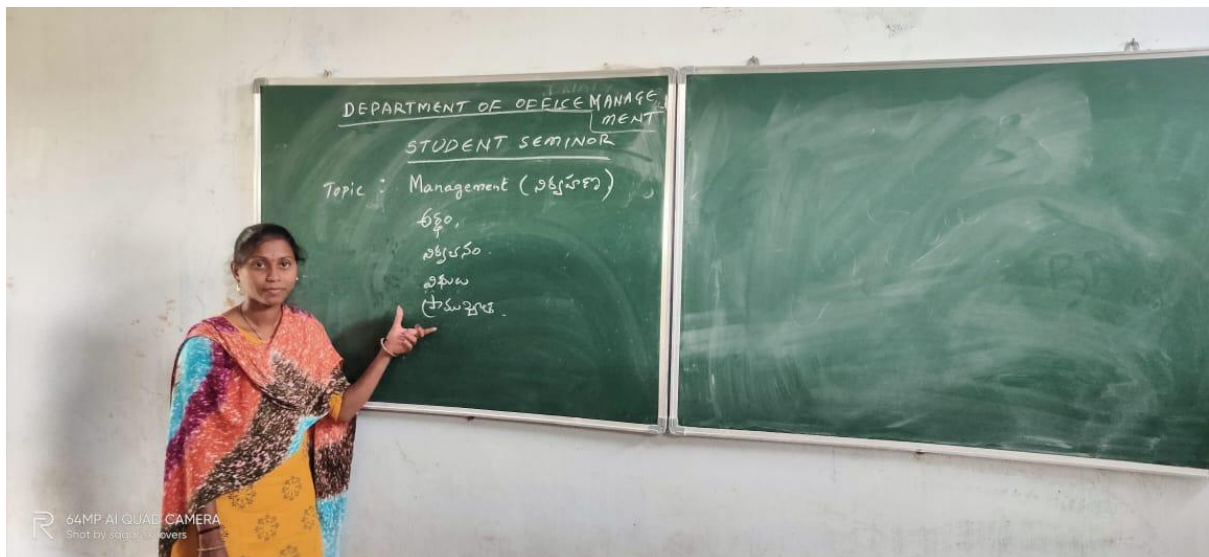 DEPARTMENT OF OFFICE MANAGE
MENT
STUDENT SEMINOR
Topic : Management (నిర్వహణ)
అర్థం.
నిర్వచనం.
విధులు
ప్రాముఖ్యత.
64MP AI QUAD CAMERA
Shot by